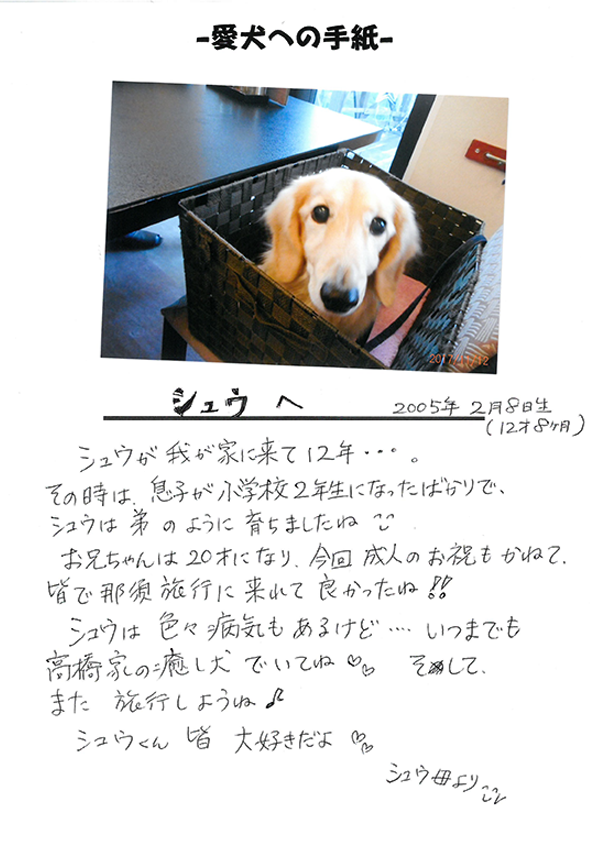 -愛犬への手紙-
2017/11/12
シュウ へ
2005年 2月8日生
(12才8ヶ月)
シュウが 我が家に来て 12年・・・。
その時は、息子が小学校2年生になったばかりで、
シュウは 弟 のように 育ちましたね
お兄ちゃんは 20才になり、今回 成人のお祝もかねて、
皆で 那須 旅行に 来れて 良かったね!!
シュウは 色々 病気も あるけど…. いつまでも
高橋家の癒し犬 でいてね♡♡ そして、
また 旅行しようね♪
シュウくん 皆 大好きだよ ♡♡
シュウ母より